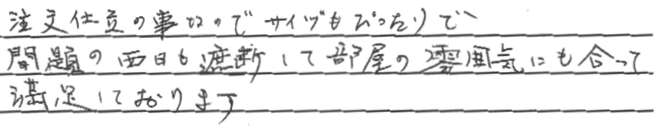 注文仕立の事なのでサイズもぴったりで
問題の西日も遮断して部屋の雰囲気にも合って
満足しております